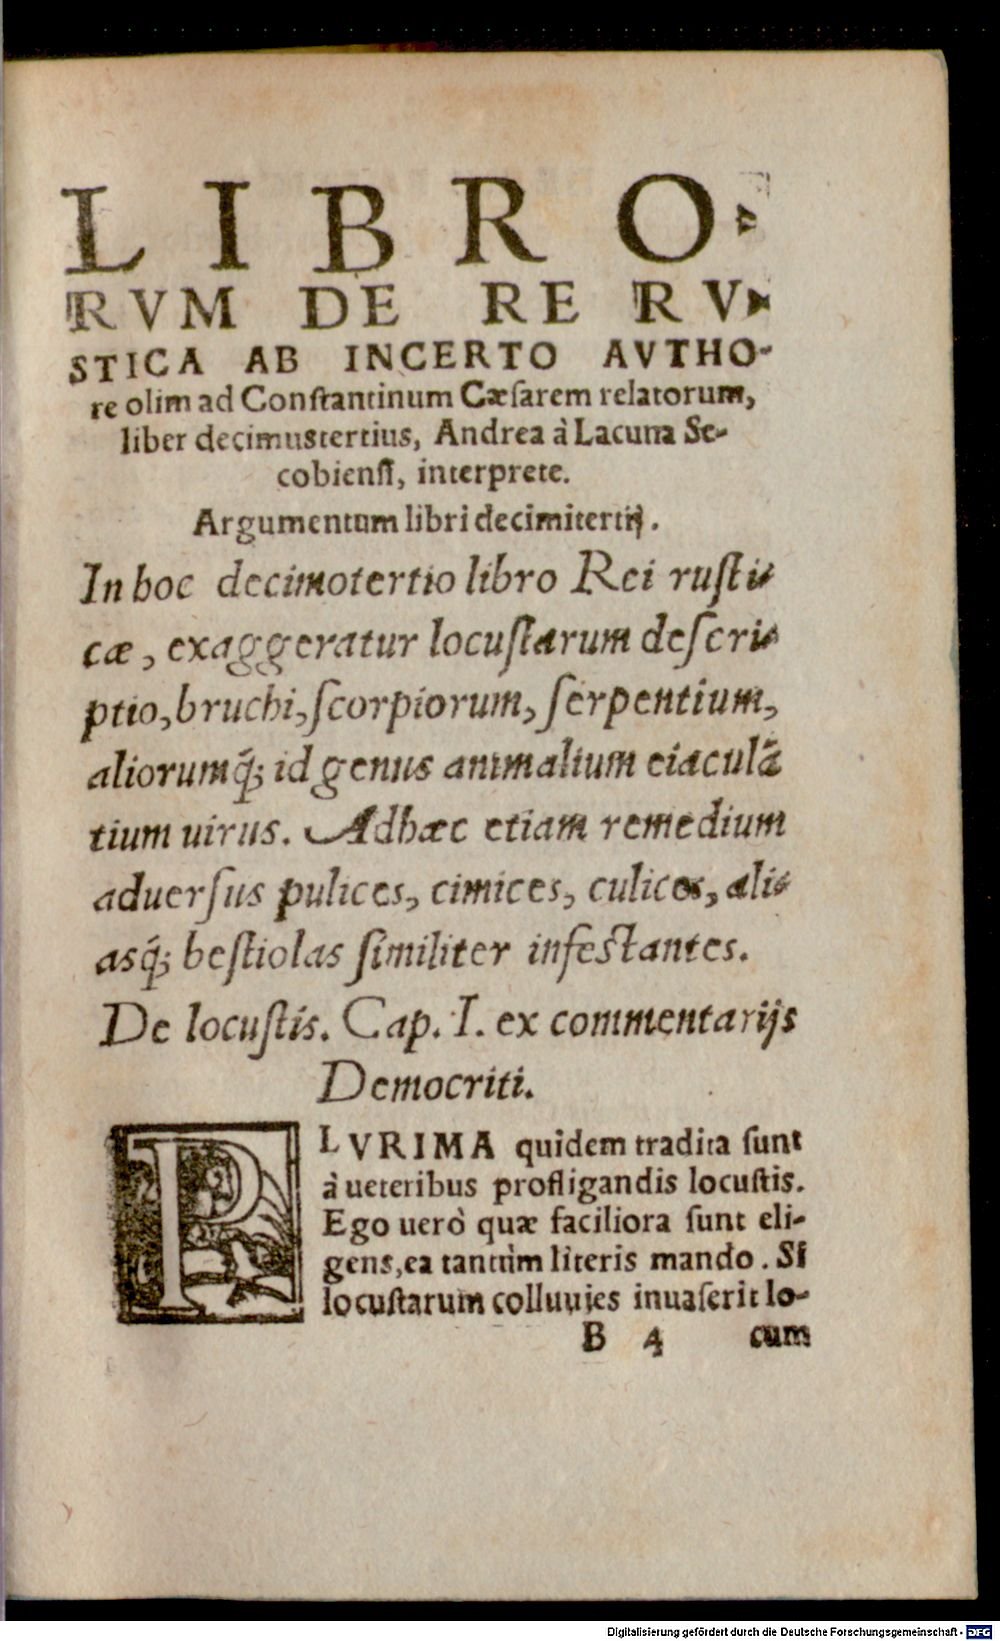 LIBRO-
RVM DE RE RV-
STICA AB INCERTO AVTHO-
re olim ad Conſtantinum Cæſarem relatorum,
liber decimustertius, Andrea à Lacuna Se-
cobienſi, interprete.
Argumentum libri decimitertij.
In hoc decimotertio libro Rei ruſti-
cæ, exaggeratur locuſtarum deſcri-
ptio, bruchi, ſcorpiorum, ſerpentium,
aliorumq́; id genus animalium eiaculã
tium uirus. Adhæc etiam remedium
aduerſus pulices, cimices, culices, ali-
asq́; beſtiolas ſimiliter infeſtantes.
De locuſtis. Cap. I. ex commentarijs
Democriti.
PLVRIMA quidem tradita ſunt
à ueteribus profligandis locuſtis.
Ego uerò quæ faciliora ſunt eli-
gens, ea tantùm literis mando. Si
locuſtarum colluuies inuaſerit lo-
B 4 cum
Digitalisierung gefördert durch die Deutsche Forschungsgemeinschaft - DFG